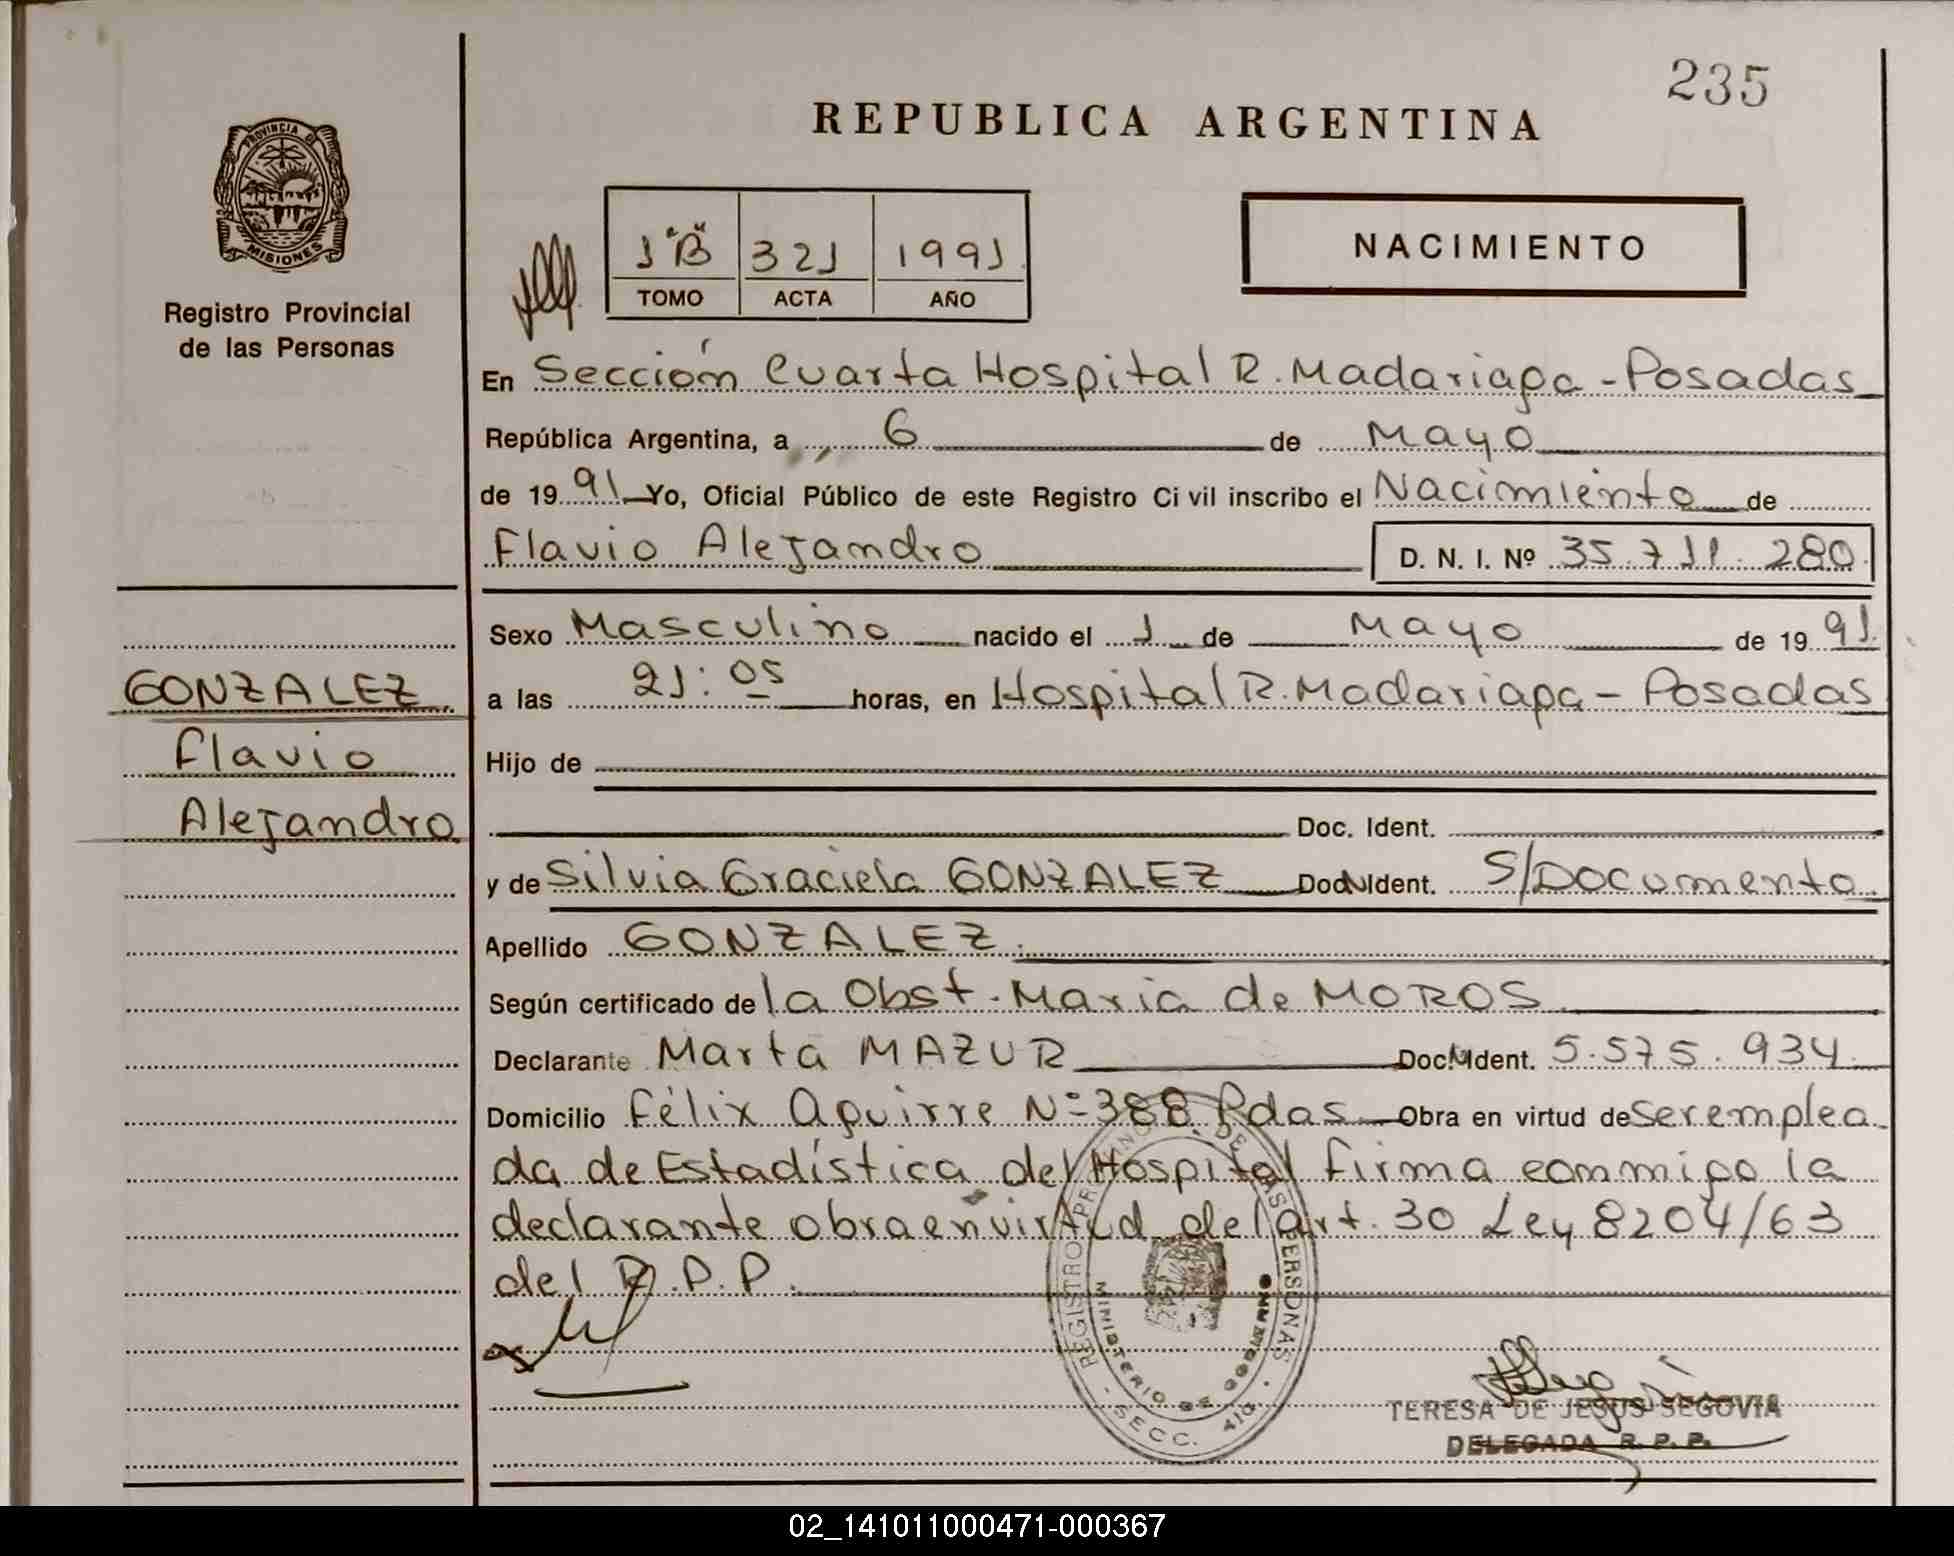 235
REPUBLICA ARGENTINA
PROVINCIA DE
MISIONES
Registro Provincial
de las Personas
1"B" 321 1991
TOMO ACTA AÑO
NACIMIENTO
En Sección Cuarta Hospital R. Madariaga - Posadas
República Argentina, a 6 de Mayo
de 1991 Yo, Oficial Público de este Registro Civil inscribo el Nacimiento de
Flavio Alejandro D. N. I. Nº 35.711.280
Sexo Masculino nacido el 1 de Mayo de 1991
a las 21:05 horas, en Hospital R. Madariaga - Posadas
Hijo de
Doc. Ident.
y de Silvia Graciela GONZALEZ Doc. N Ident. S/Documento
Apellido GONZALEZ.
Según certificado de la Obst. Maria de MOROS
Declarante Marta MAZUR Doc. N Ident. 5.575.934
Domicilio Félix Aguirre Nº 388 Pdas Obra en virtud de ser emplea
da de Estadística del Hospital firma conmigo la
declarante obra en virtud del art. 30 Ley 8204/63
del R.P.P.
GONZALEZ
Flavio
Alejandro
REGISTRO PROVINCIAL DE LAS PERSONAS
MINISTERIO DE GOBIERNO
SECC. 4ta.
TERESA DE JESUS SEGOVIA
DELEGADA R. P. P.
02_141011000471-000367